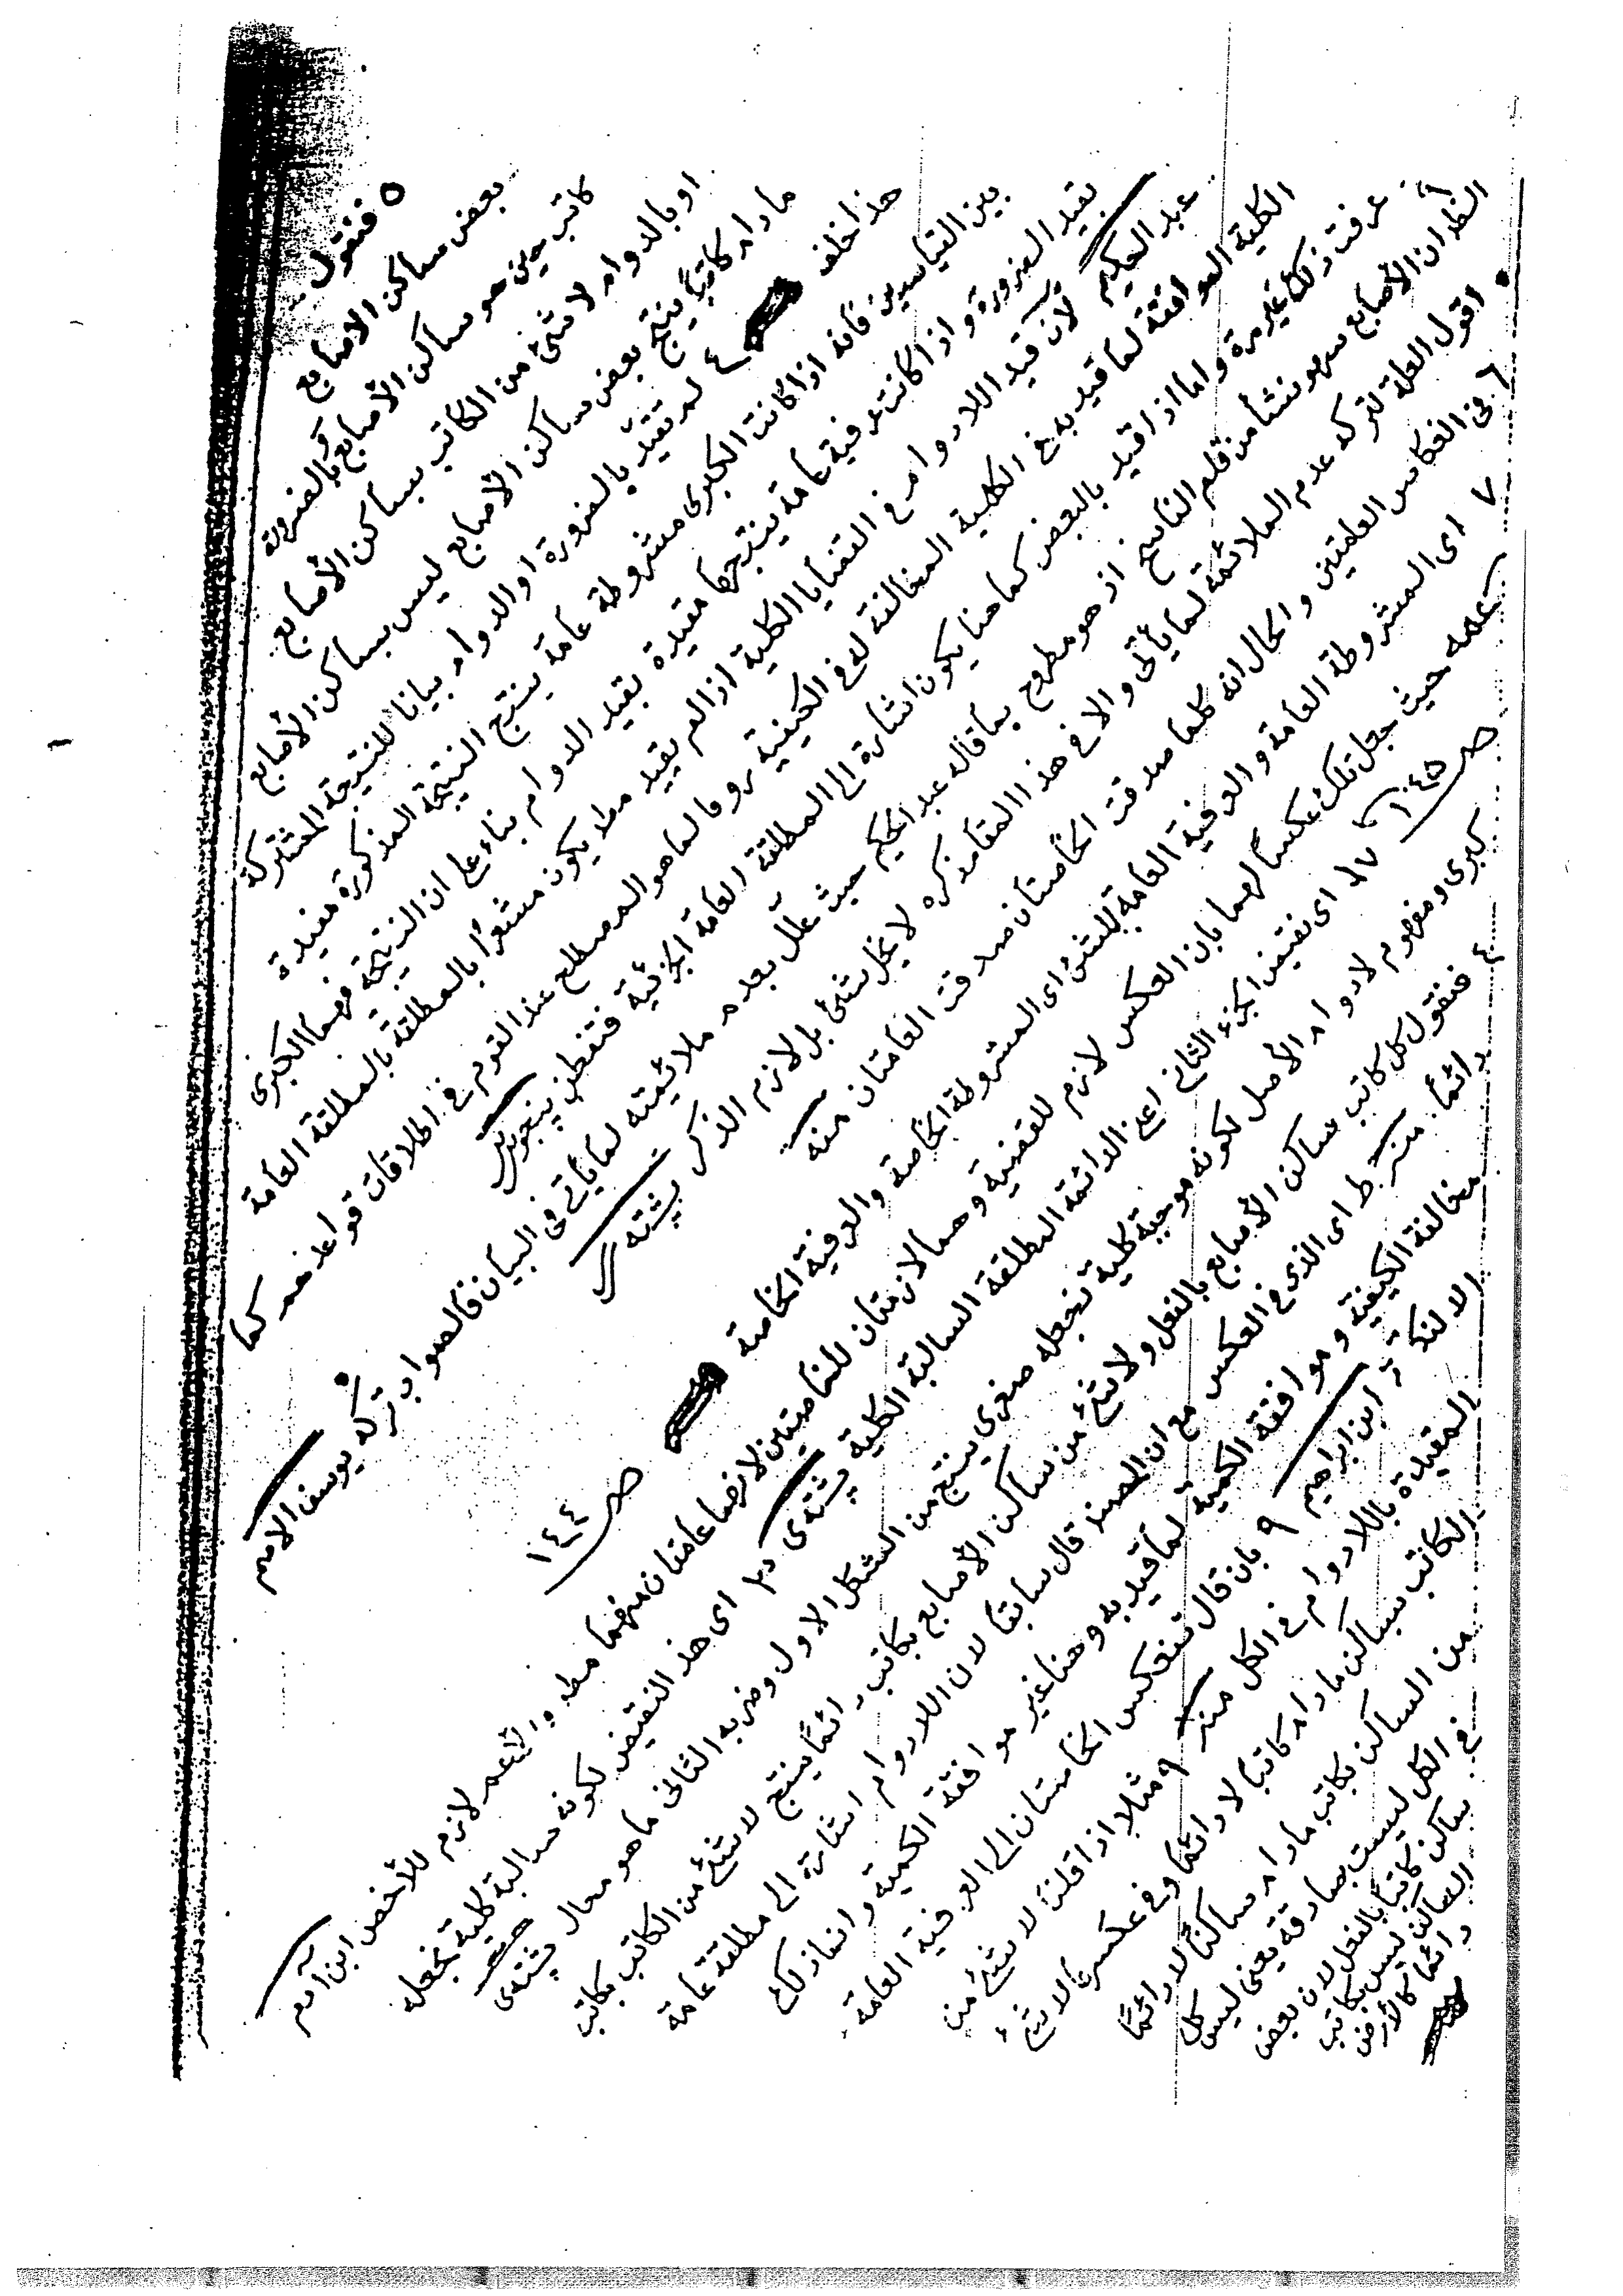 ٥ فنقول
بعض ساكن الاصابع
كاتب حين هو ساكن الأصابع وبالضرورة
او بالدوام لا شئ من الكاتب بساكن الأصابع
مادام كاتبا ينتج بعض ساكن الأصابع ليس بساكن الأصابع
هذا خلف ٤ لم تقيد بالضرورة او الدوام بيانا للنتيجة المشتركة
بين القياسين فانه اذا كانت الكبرى مشروطة عامة ينتج النتيجة المذكورة مقيدة
بقيد الضرورة و اذا كانت عرفية عامة ينتجها مقيدة بقيد الدوام بناء على ان النتيجة فيهما كالكبرى
عبد الحكيم لأن قيد اللادوام في القضايا الكلية اذا لم يقيد مط يكون مشعرا بالمطلقة بالمطلقة العامة
الكلية الموافقة لما قيد به في الكمية المخالفة له في الكيفية روما لما هو المصطلح عند القوم في اطلاقات قواعدهم كما
عرفت ذلك غير مرة واما اذا قيد بالبعض كما هنا يكون اشارة الى المطلقة العامة الجزئية فتفطن
الظ ان الأصابع سهو نشأ من قلم الناسخ اذ هو مطروح بما قاله عبد الحكيم حيث علل بعدم ملائمته لما يأتي في البيان فالصواب تركه يوسف الاصم
اقول العلة لتركه عدم الملائمة لما يأتي والا في هذا المقام ذكره لا يخل شئ بل لازم الذكر پشته
٦ في انعكاس العامتين والحال انه كلما صدقت الخاصتان صدقت العامتان منه
٧ اى المشروطة العامة والعرفية العامة للشئ اى المشروطة الخاصة والعرفية الخاصة
حيث جعل تلك عكسا لهما بان العكس لازم للقضية وهما لازمتان للخاصتين لانهما عامتان منهما مط والأعم لازم للأخص ابن آدم
ص ١٤٤
ص ١٤٥ اى نقيض الجزء الثاني اعني الدائمة المطلقة السالبة الكلية پشتەى اى هذا النقيض لكونه سالبة كلية نجعله
كبرى ومفهوم لادوام الأصل لكونه موجبة كلية نجعله صغرى ينتج من الشكل الاول وضربه الثاني ما هو محال پشتەى
٤ فنقول كل كاتب ساكن الأصابع بالفعل ولا شئ من ساكن الأصابع بكاتب دائما ينتج لا شئ من الكاتب بكاتب
دائما منه ط اى الذي في العكس مع ان المصنف قال سابقا لان اللادوام اشارة الى مطلقة عامة
مخالفة الكيفية وموافقة الكمية لما قيد به وهنا غير موافقة الكمية وانما ذلك
الا لنكتة ابن ابراهيم ٩ بان قال تنعكس الخاصتان الى العرفية العامة
المقيدة باللادوام في الكل منه ٩ مثلا اذا قلنا لا شئ من
الكاتب بساكن مادام كاتبا لا دائما وفي عكسها لا شئ
من الساكن بكاتب مادام ساكنا لا دائما
في الكل ليست صادقة يعني ليس كل
ساكن كاتبا بالفعل لان بعض
الساكن ليس بكاتب
دائما كالأرض